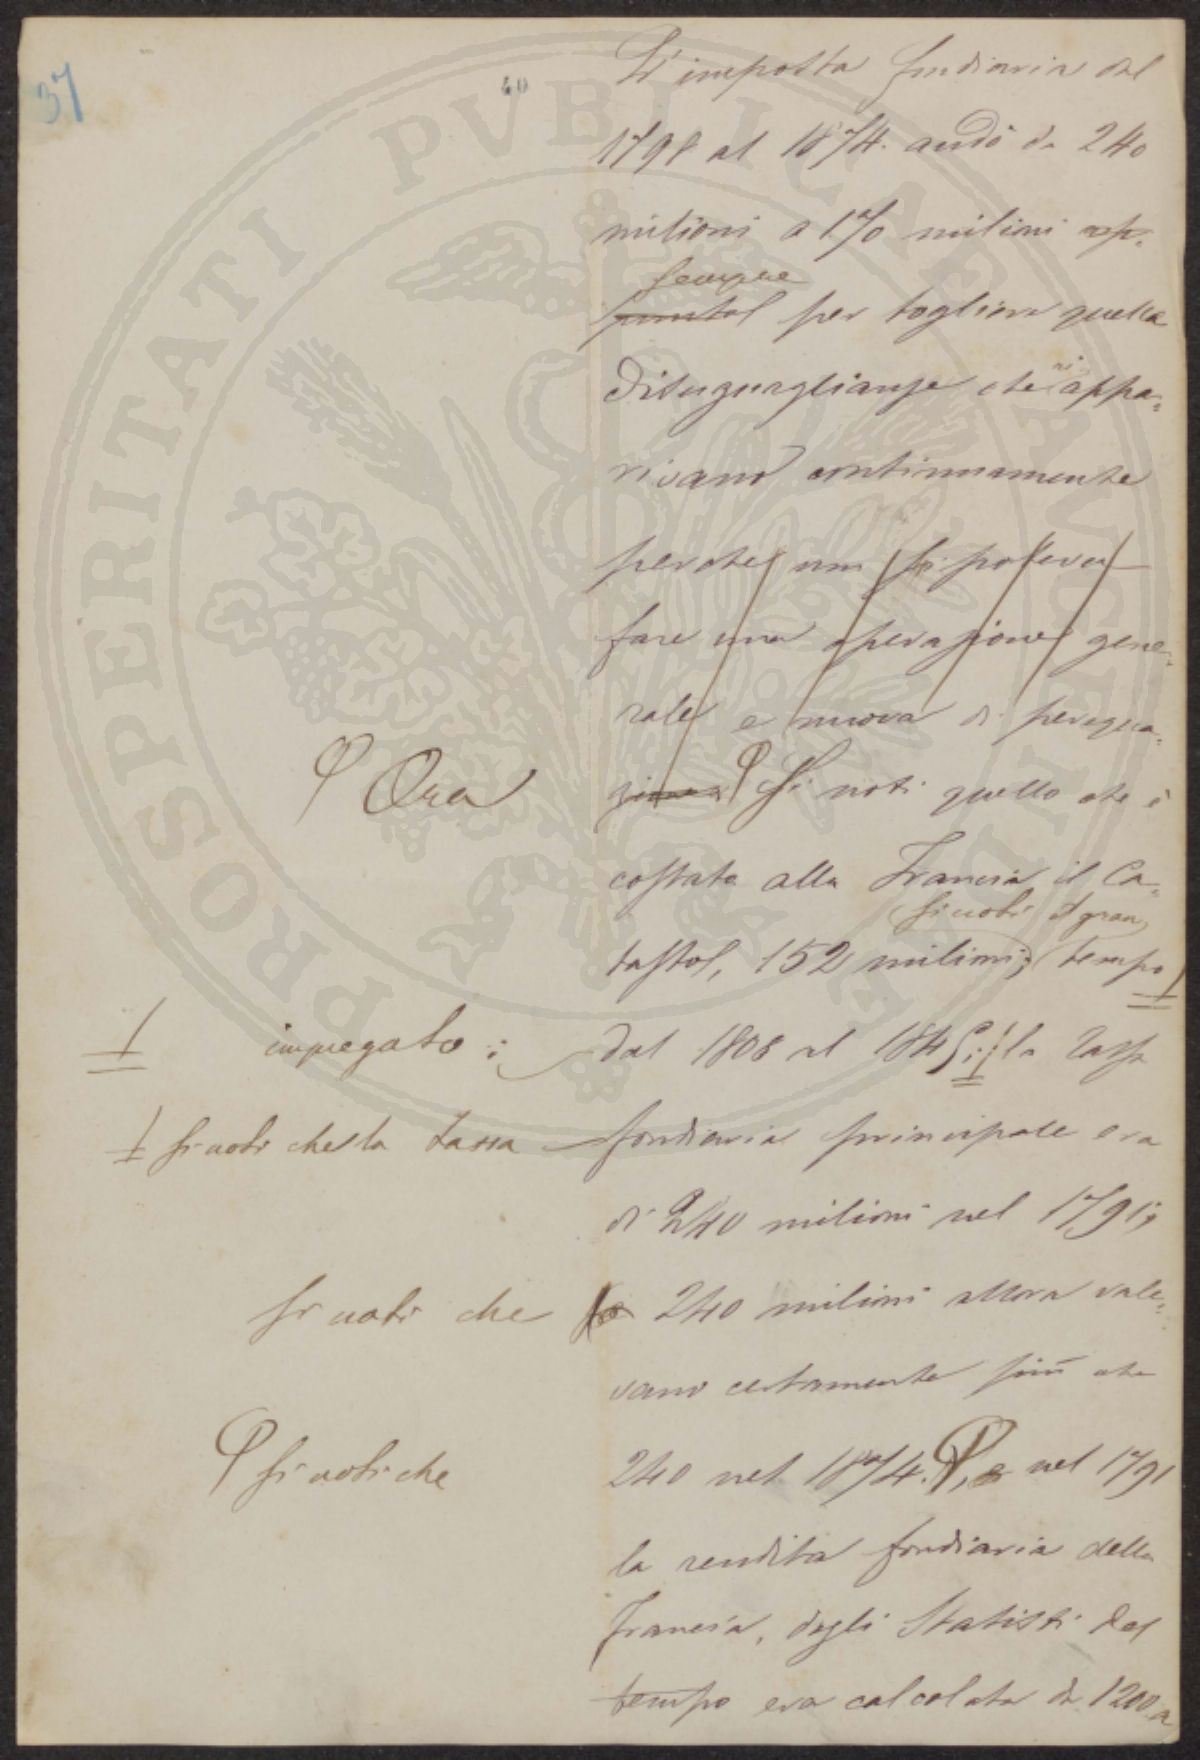 37
40
L'imposta fondiaria dal
1791 al 1874. andò da 240
milioni a 170 milioni ap-
sempre
puntol per togliere quella
disuguaglianze che ri appa-
rivano continuamente
perchè non si poteva
fare una operazione gene-
rale e nuova di perequa-
zione. Si noti quello che è
Ora
costato alla Francia il Ca-
si noti il gran
tastol, 152 milioni; tempo
impiegato;
dal 1808 al 1845; la tassa
si noti che la tassa
fondiaria principale era
di 240 milioni nel 1791;
si noti che
240 milioni allora vale-
vano certamente più che
si noti che
240 nel 1874. e nel 1791
la rendita fondiaria della
Francia, dagli Statisti del
tempo era calcolata da 1200 a
PROSPERITATI PVBLICAE AVGENDAE